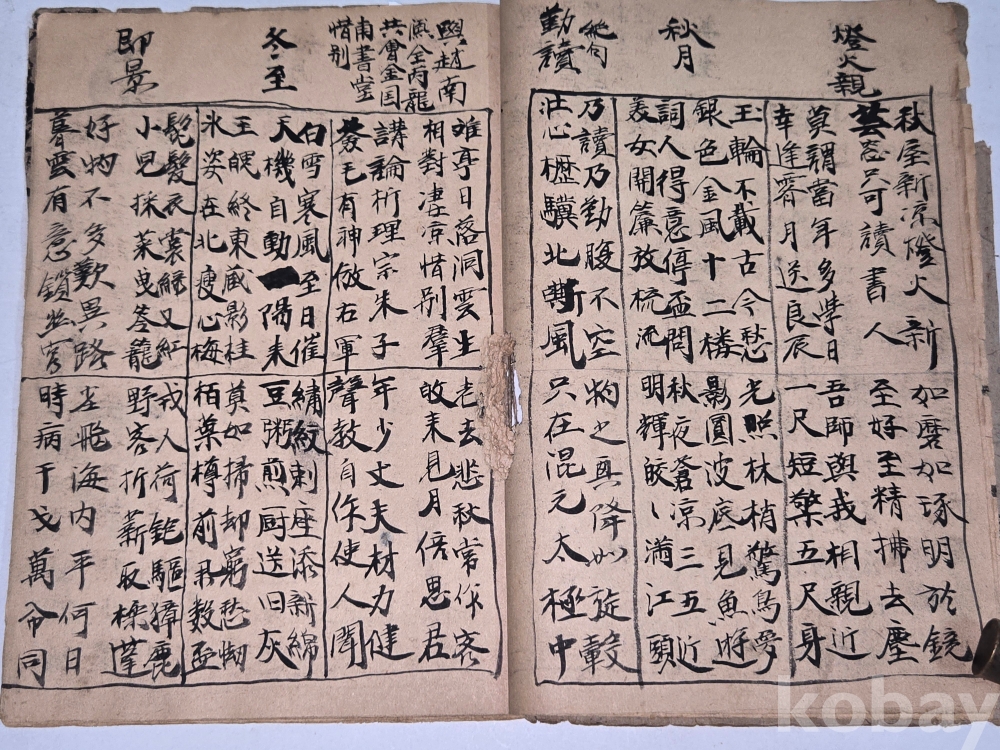 燈火親
秋屋新凉燈火新
芸窓只可讀書人
莫謂當年多學日
幸逢霽月送良辰
如磨如琢明於鏡
至好至精拂去塵
吾師與我相親近
一尺短檠五尺身
秋月
玉輪不載古今愁
銀色金風十二樓
詞人得意停盃問
美女開簾放梳流
光照林梢驚鳥夢
影圓波底見魚遊
秋夜蒼凉三五近
明輝皎〻滿江頭
勤讀
絶句
乃讀乃勤腹不空
壯心櫪驥北嘶風
物之興降如旋轂
只在混元太極中
與趙南
溪全丙龍
共會金国
南書堂
惜别
唯亭日落洞雲生
相對凄凉惜别羣
講論析理宗朱子
發毛有神倣右軍
老去悲秋常作客
收来見月倍思君
年少丈夫材力健
聲教自作使人聞
冬至
白雪寒風至日催
天機自動一陽来
王魄終東蔵影桂
氷姿在北瘦心梅
繡紋刺座添新綿
豆粥煎厨送旧灰
莫如掃却窮愁惱
栢葉樽前君數盃
即景
鬓髮衣裳緑又紅
小兒採菜曳荅籠
好物不多歎異路
暮雲有意鎖
戎人荷銃驅獐鹿
野客折薪取
塵飛海内平何日
時病干戈萬命同